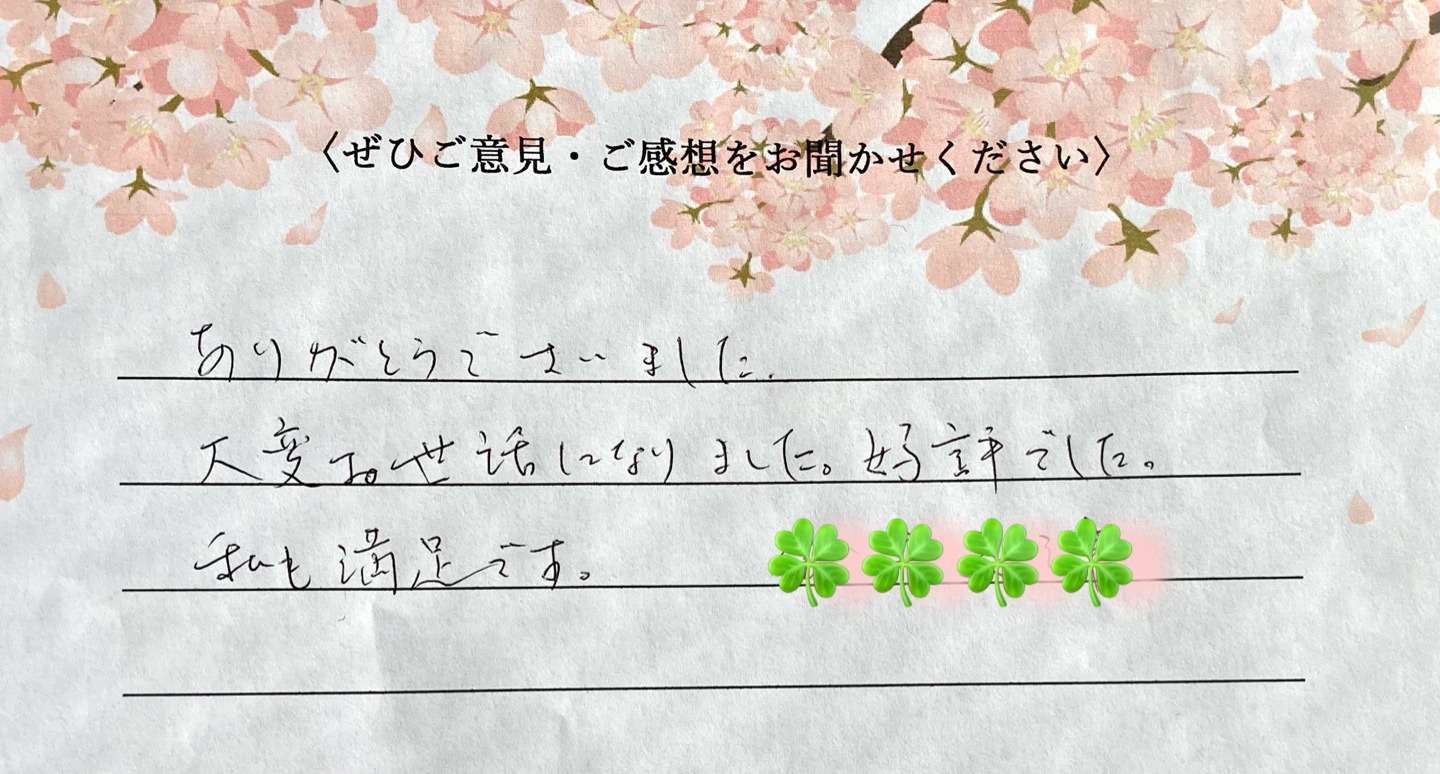 〈ぜひご意見・ご感想をお聞かせください〉
ありがとうございました.
大変お世話になりました。好評でした。
私も満足です。